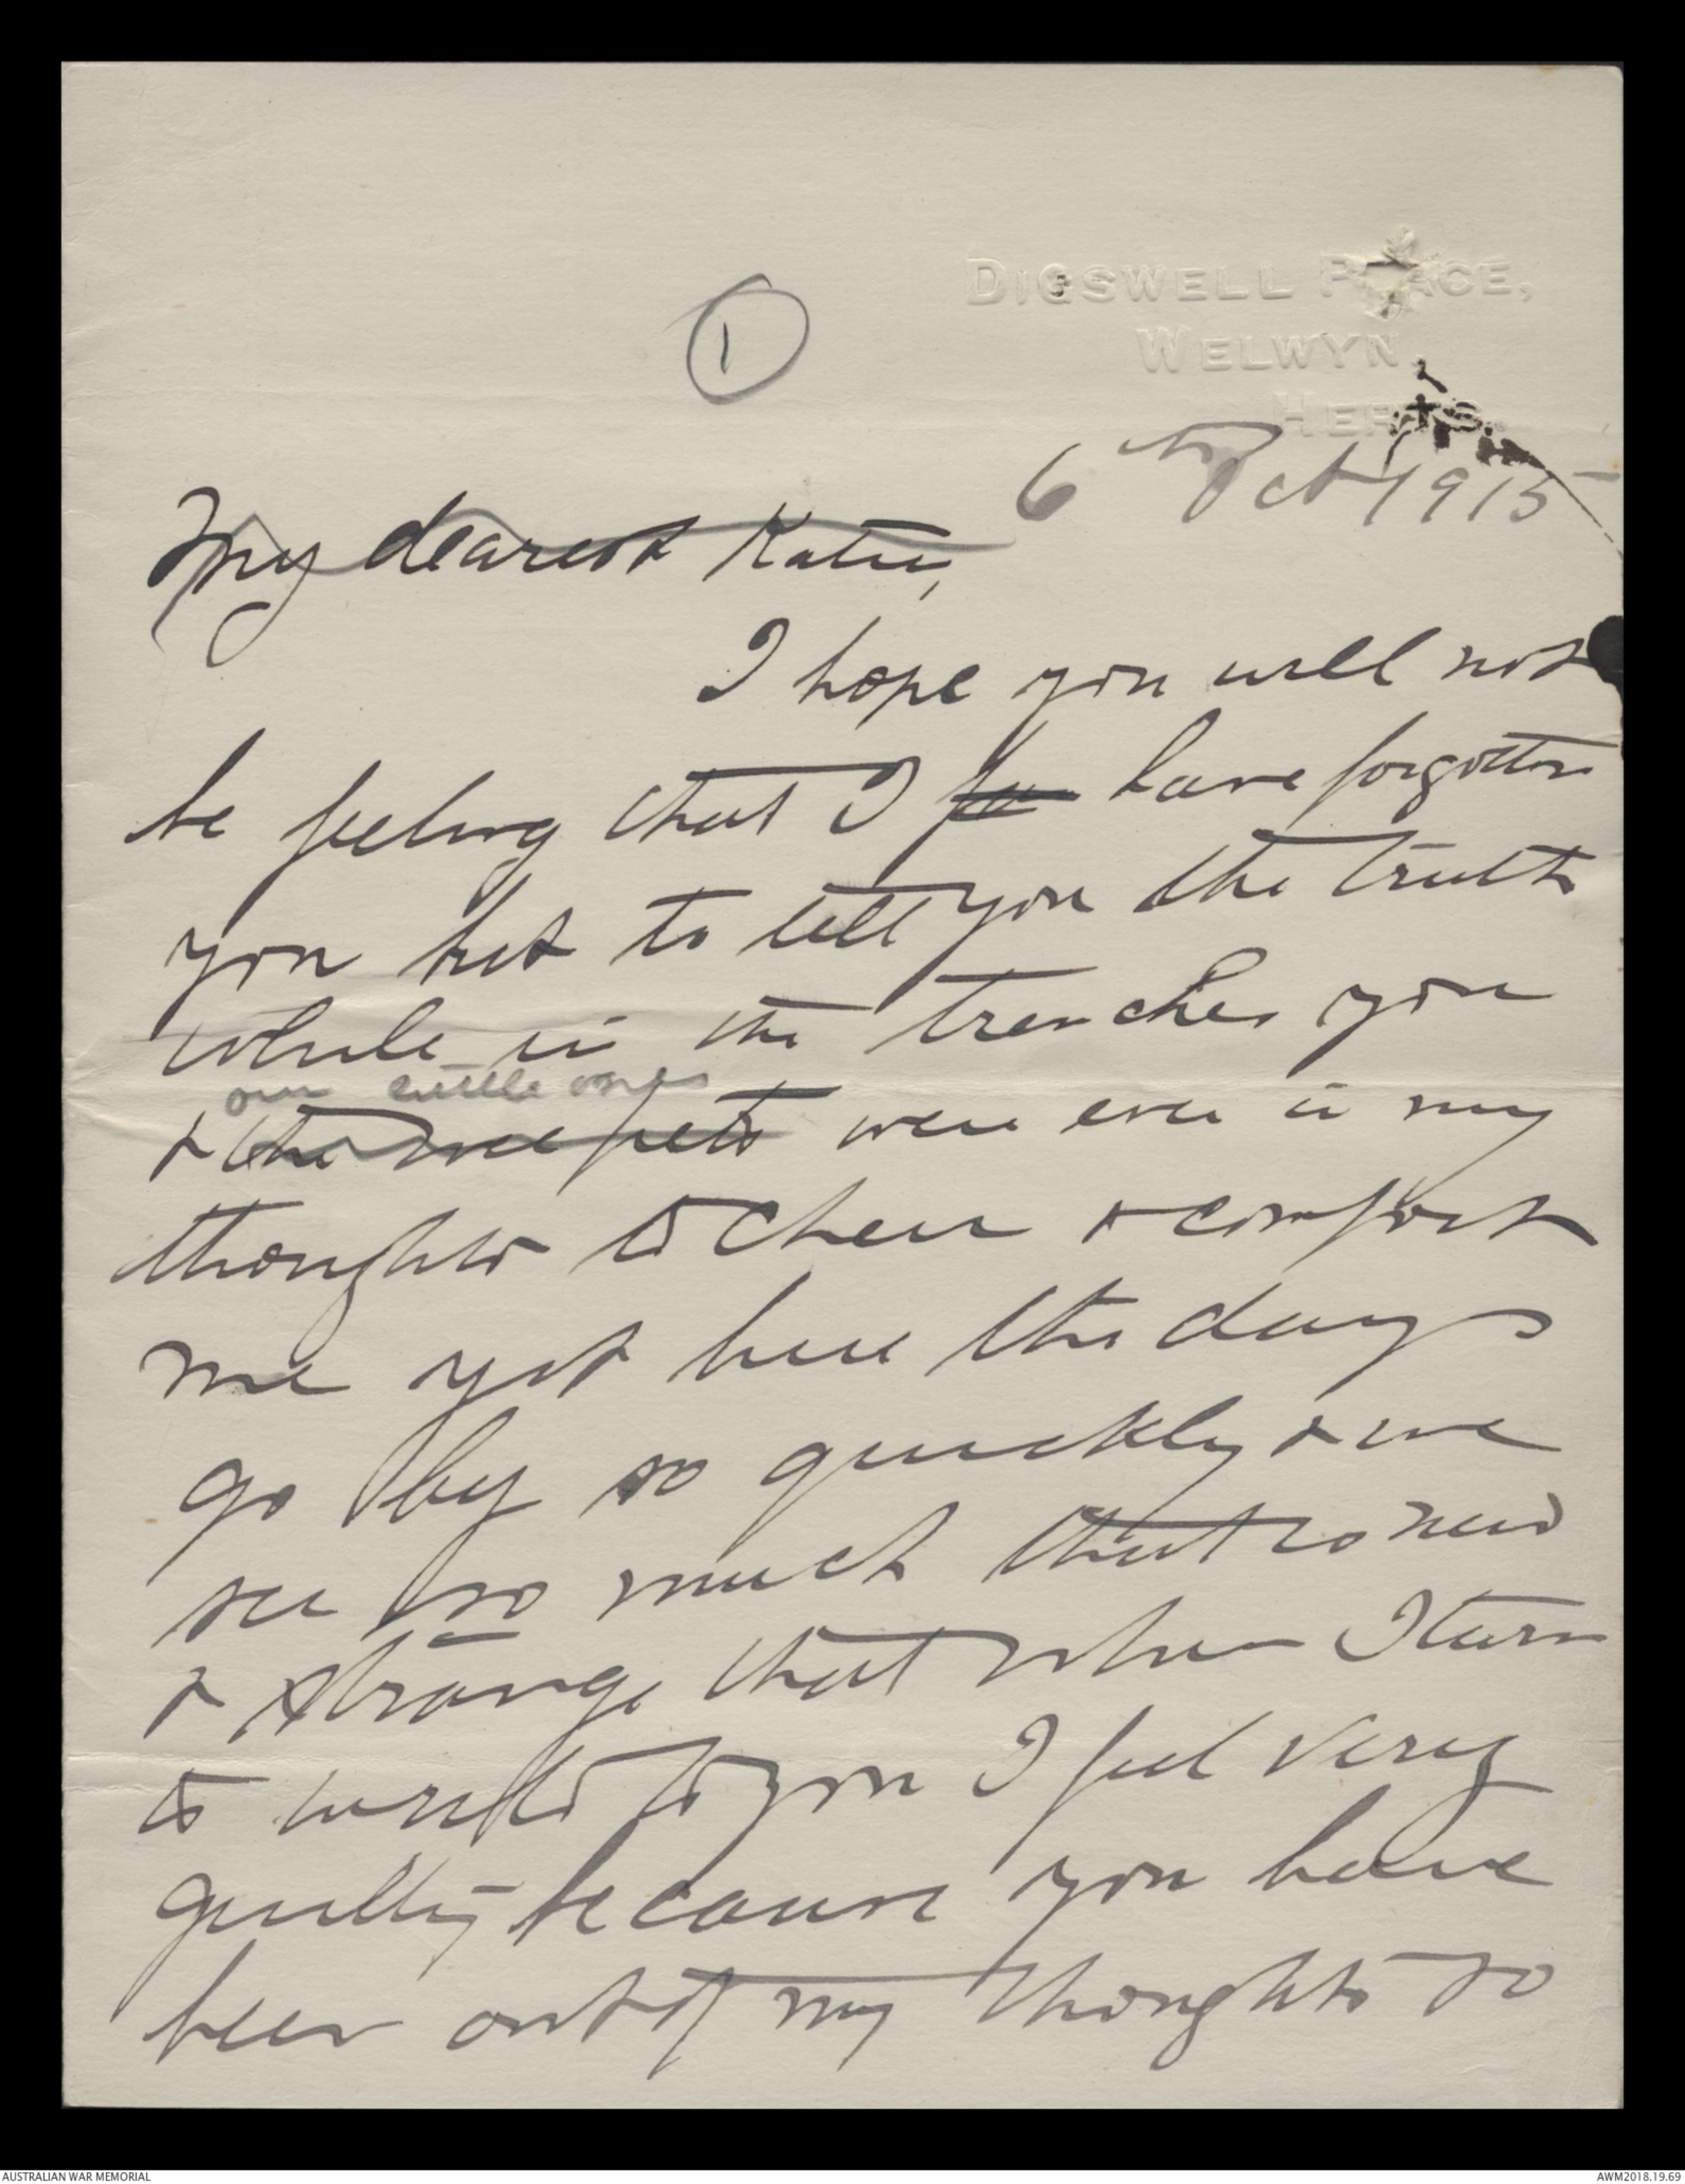 ①
DIGSWELL PLACE,
WELWYN,
HERTS.
6th Oct 1915
My dearest Katie,
I hope you will not
be feeling that I have forgotten
you but to tell you the truth
while in the trenches you
our little ones
& the wee pets were ever in my
thoughts to cheer & comfort
me yet here the days
go by so quickly & we
see so much that is new
& strange that when I turn
to write to you I feel very
guilty because you have
been out of my thoughts so
AUSTRALIAN WAR MEMORIAL
AWM2018.19.69